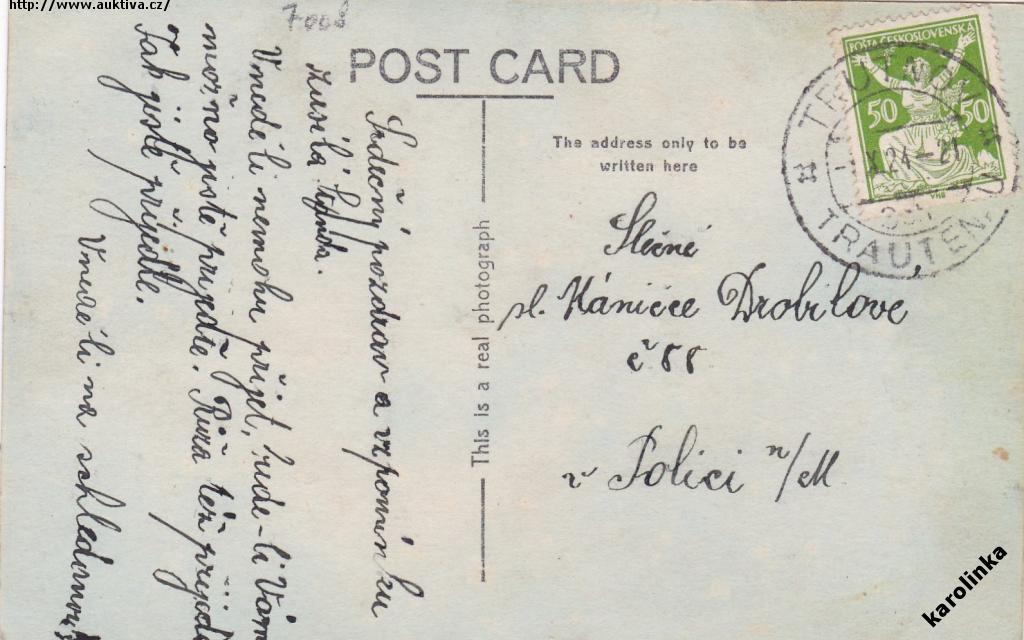 http://www.auktiva.cz/
7008
POST CARD
The address only to be
written here
This is a real photograph
POŠTA ČESKOSLOVENSKÁ
50 50
TRUTNOV
X 24-21
TRAUTENAU
Srdečný pozdrav a vzpomínku
zasílá
V neděli nemohu přijet, bude-li Vám
možno jistě přijeďte. Růža též přijede
Tak jistě přijeďte.
V neděli na schledanou!
Slečně
sl. Máničce Drobilove,
č 88
v Polici n/M
karolinka